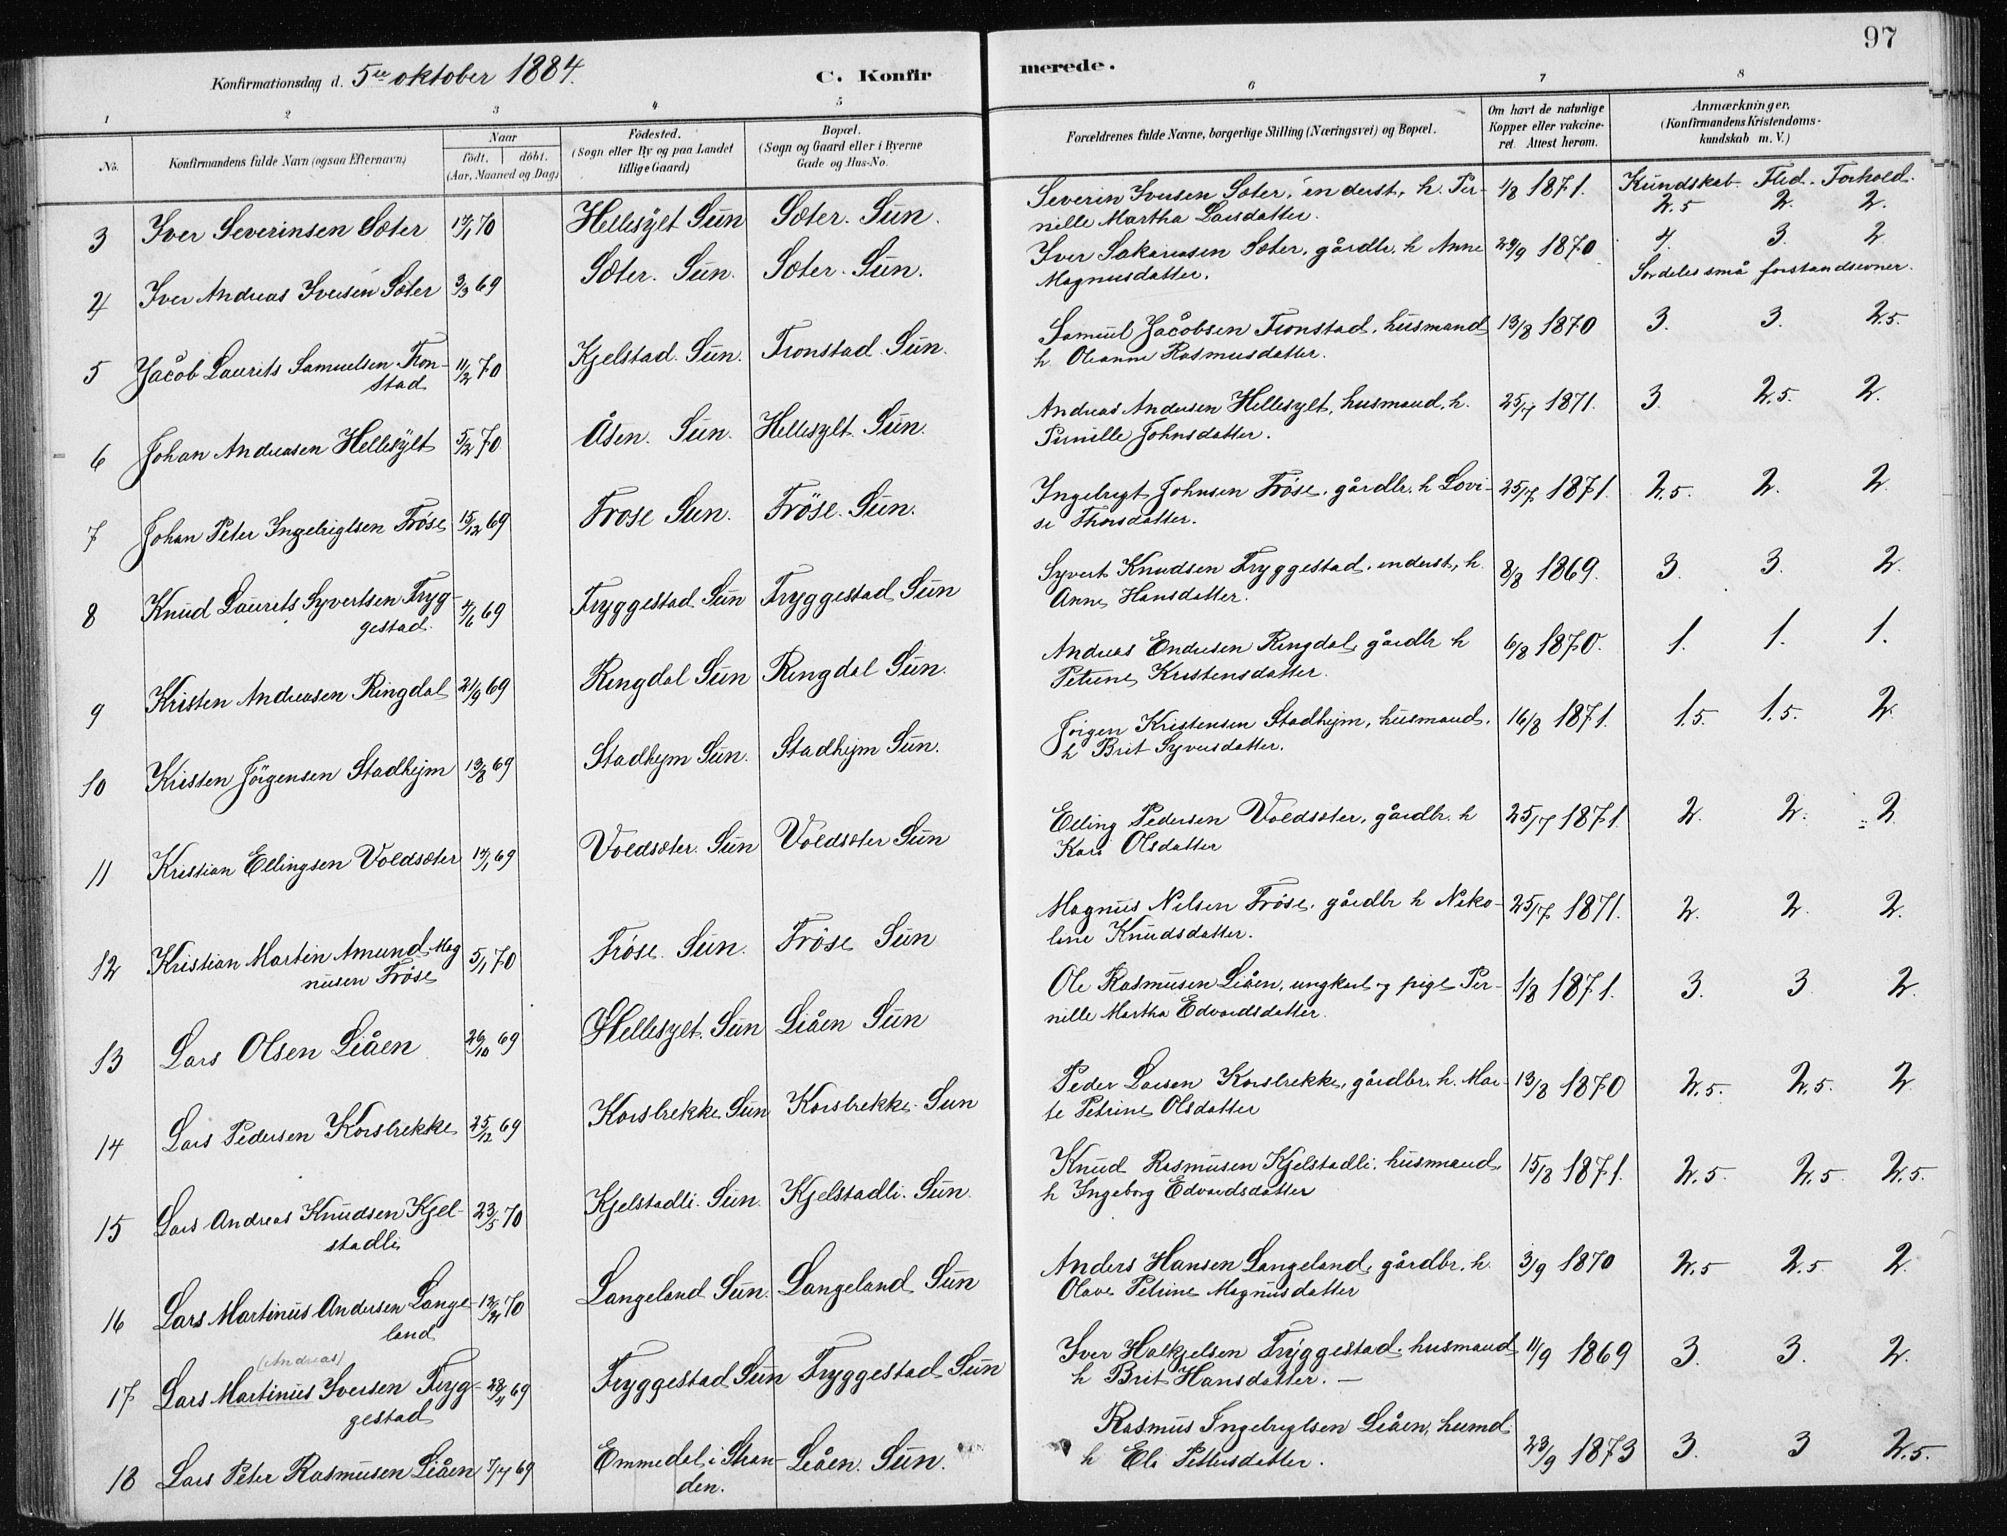 97
Konfirmationsdag d. 5te oktober 1884.
C. Konfirmerede.
1 2 3 4 5 6 7 8
No.
Konfirmandens fulde Navn (ogsaa Efternavn)
Naar
født. döbt.
(Aar, Maaned og Dag)
Födested.
(Sogn eller By og paa Landet
tillige Gaard)
Bopæl.
(Sogn og Gaard eller i Byerne
Gade og Hus-No.
Forældrenes fulde Navne, borgerlige Stilling (Næringsvei) og Bopæl.
Om havt de naturlige
Kopper eller vakcine-
ret. Attest herom.
Anmærkninger.
(Konfirmandens Kristendoms-
kundskab m. V.)
Kundskab. Flid. Forhold.
3 Iver Severinsen Sæter 70 Hellesylt Sun Sæter. Sun. Severin Iversen Sæter, inderst, h. Per- 1/8 1871. 2.5 2. 2.
nille Martha Larsdatter.
4 Iver Andreas Iversen Sæter 3/3 69 Sæter. Sun. Sæter. Sun. Iver Sakariasen Sæter, gårdbr. h Anne 23/9 1870 4. 3. 2
Magnusdatter. Særdeles små forstandsevner.
5 Jacob Laurits Samuelsen Tron- 11/2 70 Kjelstad. Sun. Tronstad. Sun. Samuel Jacobsen Tronstad, husmand 13/8 1870 3. 3. 2.5.
stad h. Oleanne Rasmusdatter.
6 Johan Andreasen Hellesylt 5/2 70 Åsen. Sun. Hellesylt. Sun. Andreas Andersen Hellesylt, husmand, h. 25/7 1871. 3. 2.5. 2.
Pernille Johnsdatter.
7 Johan Peter Ingebrigtsen Fröse 15/12 69 Fröse Sun. Fröse. Sun. Ingebrigt Johnsen Fröse. gårdbr. h Lovi- 25/7 1871. 2.5. 2. 2.
se Thorsdatter.
8 Knud Laurits Syvertsen Tryg- 4/6 69 Tryggestad Sun Tryggestad Sun Syvert Knudsen Tryggestad. inderst, h. 8/8 1869. 3. 3. 2.
gestad. Anne Hansdatter.
9 Kristen Andreasen Ringdal 21/9 69 Ringdal Sun Ringdal Sun. Andreas Endresen Ringdal, gårdbr h 6/8 1870. 1. 1. 1.
Petrine Kristensdatter.
10 Kristen Jörgensen Stadhejm 13/8 69 Stadhejm Sun. Stadhejm Sun. Jörgen Kristensen Stadhejm, husmand. 16/8 1871. 1.5. 1.5. 2.
h Brit Syversdatter.
11 Kristian Ellingsen Voldsæter 69 Voldsæter. Sun Voldsæter Sun Elling Pedersen Voldsæter, gårdbr. h 25/7 1871. 2. 2. 2.
Kari Olsdatter
12 Kristian Martin Amund Mag 5/1 70 Fröse. Sun. Fröse Sun Magnus Nilsen Fröse. gårdbr h Niko- 25/7 1871. 2. 2. 2.
nusen Fröse line Knudsdatter.
13 Lars Olsen Liåen 26/10 69 Hellesylt. Sun Liåen Sun Ole Rasmusen Liåen, ungkarl og pige Per- 1/8 1871. 3. 3. 2.
nille Martha Edvardsdatter.
14 Lars Pedersen Korsbrekke 25/12 69 Korsbrekke Sun Korsbrekke. Sun Peder Larsen Korsbrekke, gårdbr. h. Mar- 13/8 1870 2.5. 2.5. 2.
te Petrine Olsdatter
15 Lars Andreas Knudsen Kjel- 23/5 70 Kjelstadli. Sun. Kjelstadli. Sun. Knud Rasmusen Kjelstadli. husmand. 15/8 1871. 2.5. 2.5. 2.5.
stadli h Ingeborg Edvardsdatter
16 Lars Martinus Andersen Lange- 70 Langeland Sun. Langeland Sun Anders Hansen Langeland, gårdbr. h. 3/9 1870 2.5 2.5. 2.
land Olave Petrine Magnusdatter
(Andreas)
17 Lars Martinus Iversen Tryg- 69 Tryggestad Sun Tryggestad Sun Iver Halkjelsen Tryggestad. husmand 11/9 1869 3. 3. 2.
gestad h Brit Hansdatter. —
18 Lars Peter Rasmusen Liåen 7/7 69 Emmedal i Stran- Liåen. Sun. Rasmus Ingebrigtsen Liåen, husmd 23/9 1873 3. 3 2.5.
den. h Eli Pettersdatter.